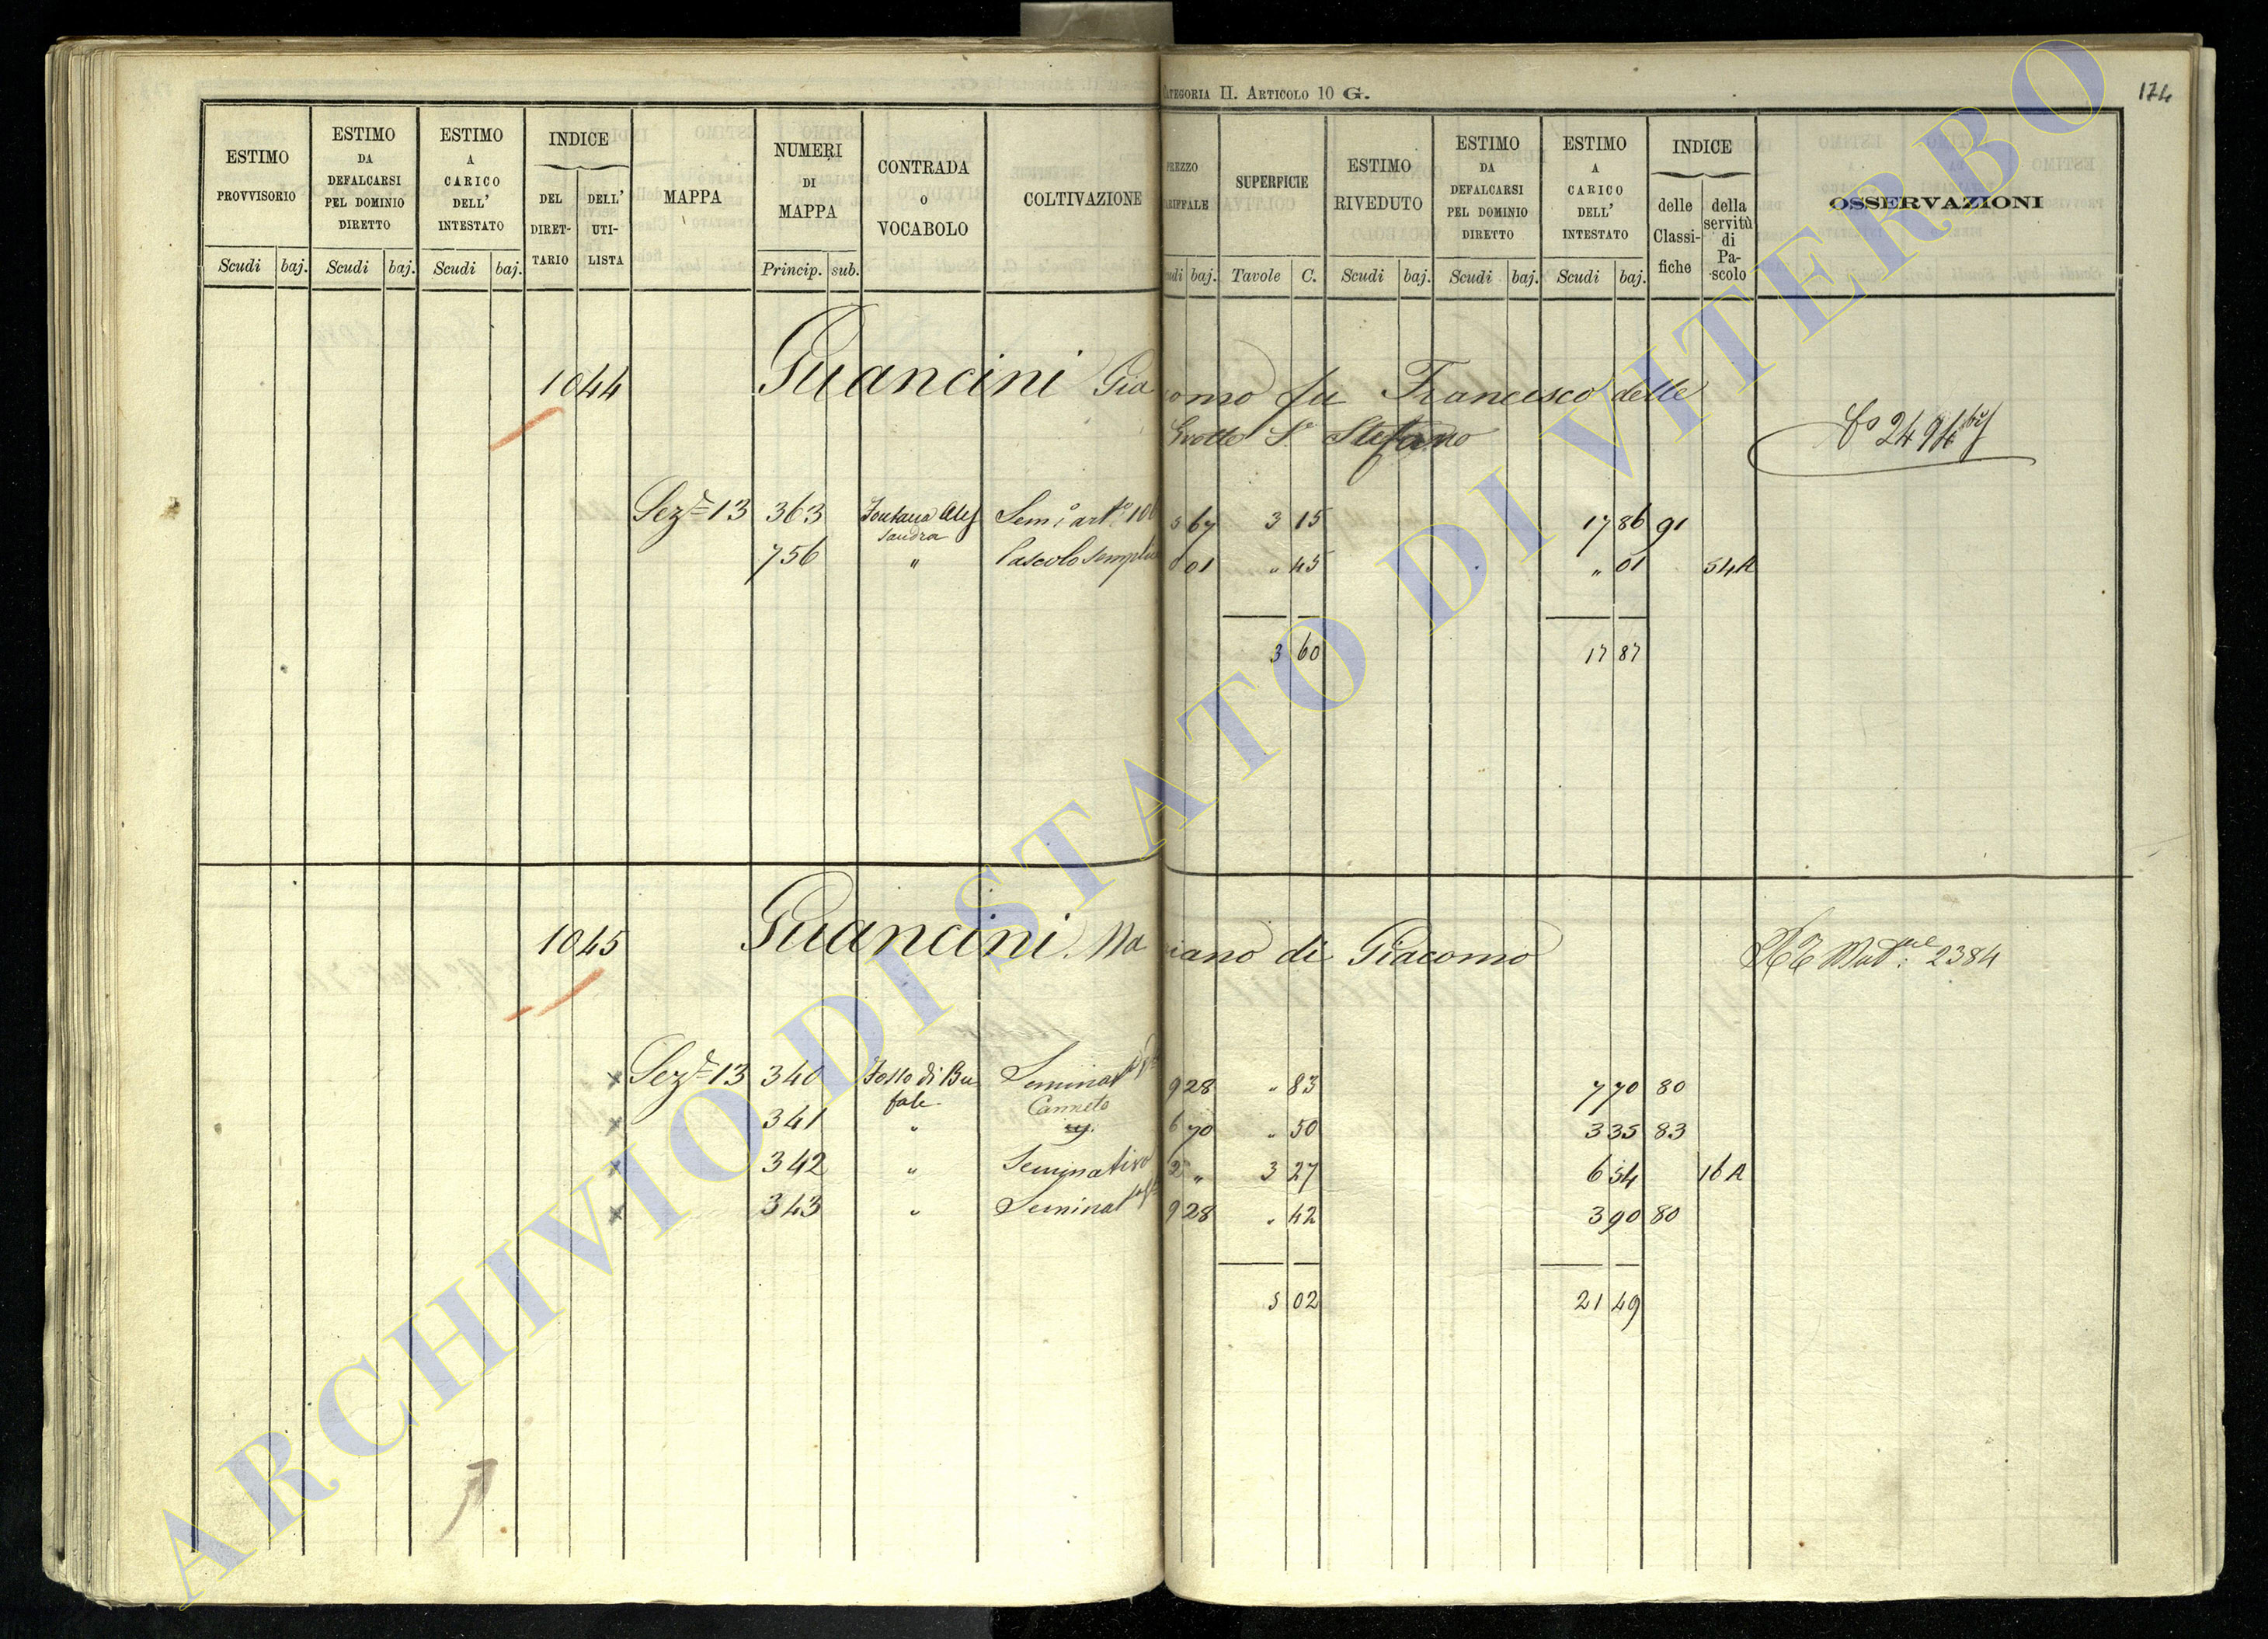 CATEGORIA II. ARTICOLO 10 G.
174
ESTIMO PROVVISORIO
ESTIMO DA DEFALCARSI PEL DOMINIO DIRETTO
ESTIMO A CARICO DELL' INTESTATO
INDICE
DEL DIRET-TARIO
DELL' UTI-LISTA
MAPPA
NUMERI DI MAPPA
CONTRADA O VOCABOLO
COLTIVAZIONE
PREZZO
SUPERFICIE
ESTIMO RIVEDUTO
ESTIMO DA DEFALCARSI PEL DOMINIO DIRETTO
ESTIMO A CARICO DELL' INTESTATO
INDICE
delle Classi-fiche
della servitù di Pa-scolo
OSSERVAZIONI
Scudi baj. Scudi baj. Scudi baj. Princip. sub. baj. Tavole C. Scudi baj. Scudi baj. Scudi baj.
1044 Guancini Giacomo fu Francesco delle
Grotte S. Stefano
Sez 13 363 Fontana Ales 67 3 15 17 86 91
sandra
756 " Pascolo semplice 0 01 " 45 " 01 54A
3 60 17 87
1045 Guancini Mariano di Giacomo 2384
Sez 13 340 Fosso di Bu 9 28 " 83 7 70 80
fale Canneto
341 " 6 70 " 50 3 35 83
342 " Seminativo 2 " 3 27 6 54 16A
343 " Seminat 9 28 " 42 3 90 80
5 02 21 49
ARCHIVIO DI STATO DI VITERBO